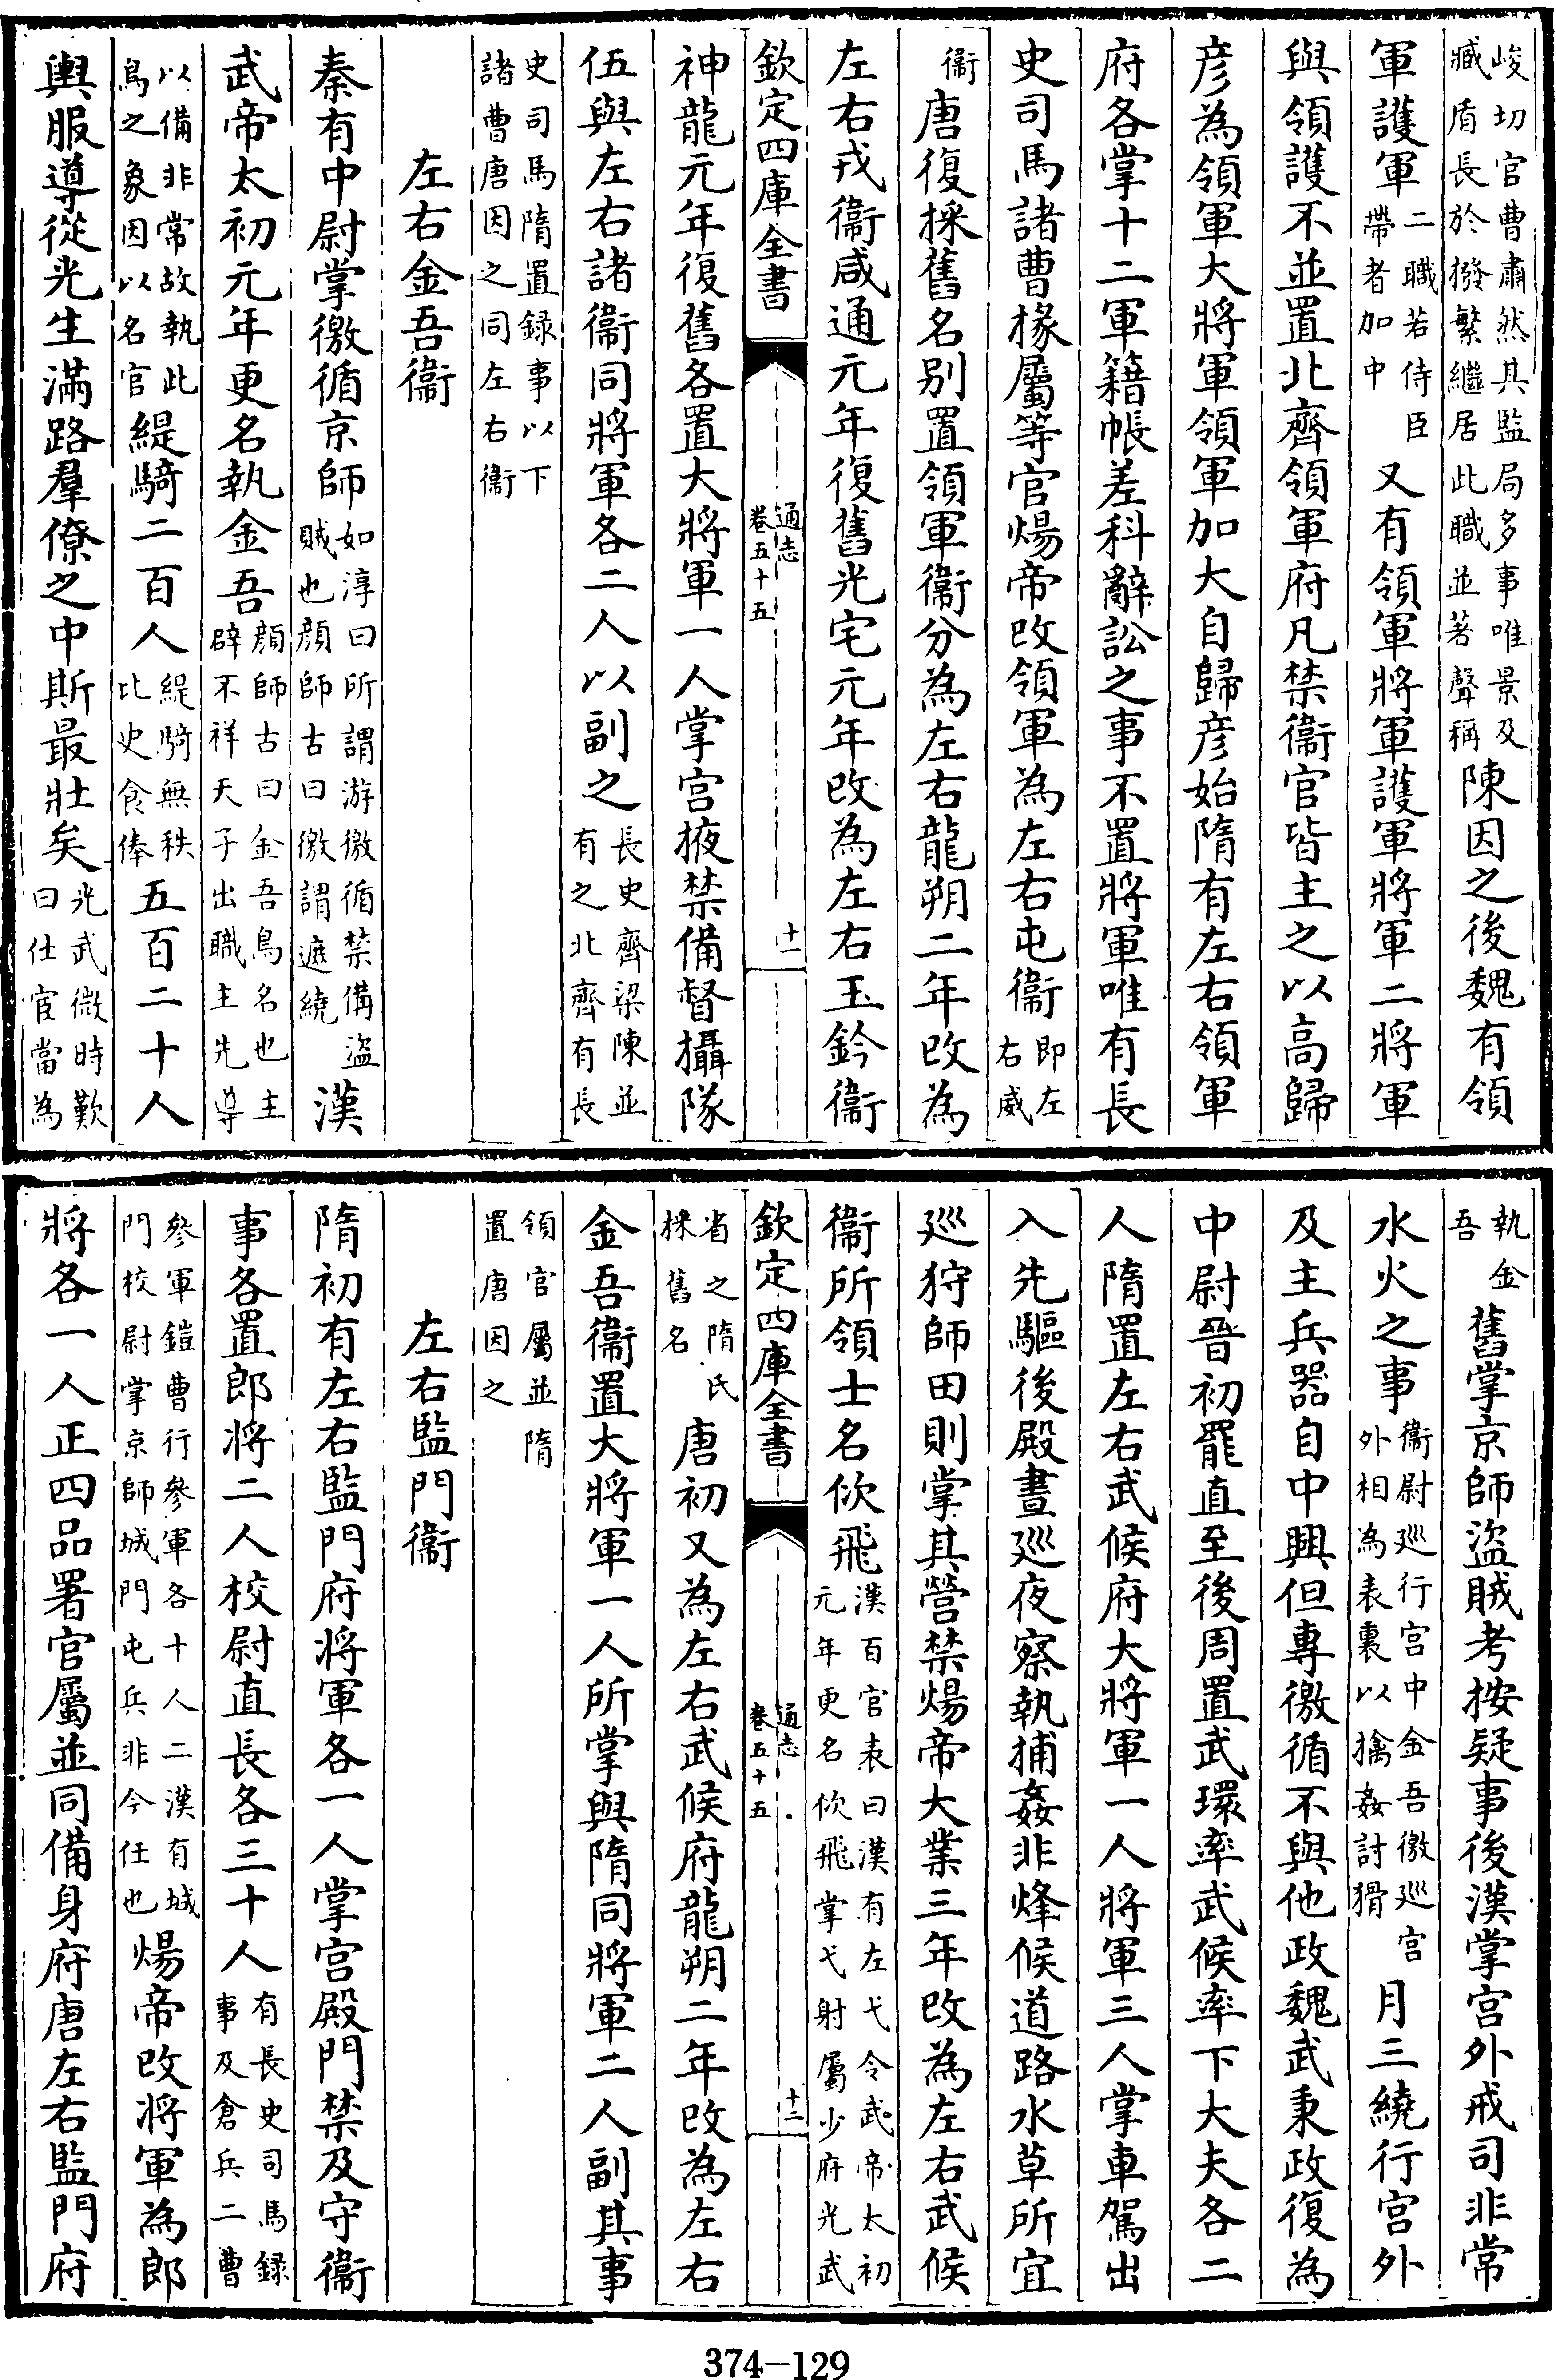 峻切官曹肅然其監局多事唯景及臧盾長於撥繁繼居此職並著聲稱陳因之後魏有領
軍護軍二職若侍臣帶者加中又有領軍將軍護軍將軍二將軍
與領護不並置北齊領軍府凡禁衞官皆主之以高歸
彥為領軍大將軍領軍加大自歸彥始隋有左右領軍
府各掌十二軍籍帳差科辭訟之事不置將軍唯有長
史司馬諸曹掾屬等官煬帝改領軍為左右屯衞即左右威
衞唐復採舊名別置領軍衞分為左右龍朔二年改為
左右戎衞咸通元年復舊光宅元年改為左右玉鈐衞
欽定四庫全書 通志卷五十五 十一
神龍元年復舊各置大將軍一人掌宮掖禁備督攝隊
伍與左右諸衞同將軍各二人以副之長史齊梁陳並有之北齊有長
史司馬隋置録事以下諸曹唐因之同左右衞
左右金吾衞
秦有中尉掌徼循京師如淳曰所謂游徼循禁備盜賊也顔師古曰徼謂遮繞漢
武帝太初元年更名執金吾顔師古曰金吾鳥名也主辟不祥天子出職主先導
以備非常故執此鳥之象因以名官緹騎二百人緹騎無秩比吏食俸五百二十人
輿服導從光生滿路羣僚之中斯最壯矣光武微時歎曰仕宦當為
執金吾舊掌京師盜賊考按疑事後漢掌宮外戒司非常
水火之事衞尉巡行宮中金吾徼巡宮外相為表裏以擒姦討猾月三繞行宮外
及主兵器自中興但專徼循不與他政魏武秉政復為
中尉晉初罷直至後周置武環率武候率下大夫各二
人隋置左右武候府大將軍一人將軍三人掌車駕出
入先驅後殿晝巡夜察執捕姦非烽候道路水草所宜
巡狩師田則掌其營禁煬帝大業三年改為左右武候
衞所領士名佽飛漢百官表曰漢有左弋令武帝太初元年更名佽飛掌弋射屬少府光武
省之隋氏採舊名唐初又為左右武候府龍朔二年改為左右
欽定四庫全書 通志卷五十五 十二
金吾衞置大將軍一人所掌與隋同將軍二人副其事
領官屬並隋置唐因之
左右監門衞
隋初有左右監門府將軍各一人掌宮殿門禁及守衞
事各置郎將二人校尉直長各三十人有長史司馬録事及倉兵二曹
參軍鎧曹行參軍各十人二漢有城門校尉掌京師城門屯兵非今任也煬帝改將軍為郎
將各一人正四品署官屬並同備身府唐左右監門府
374-129